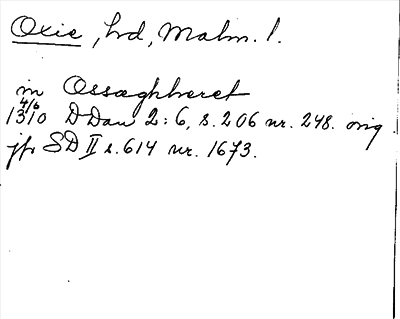 Oxie, hd, Malm. l.
in Ossæghheret
4/6
1310 DDan 2:6, s. 206 nr. 248. orig.
jfr SD II s. 614 nr. 1673.